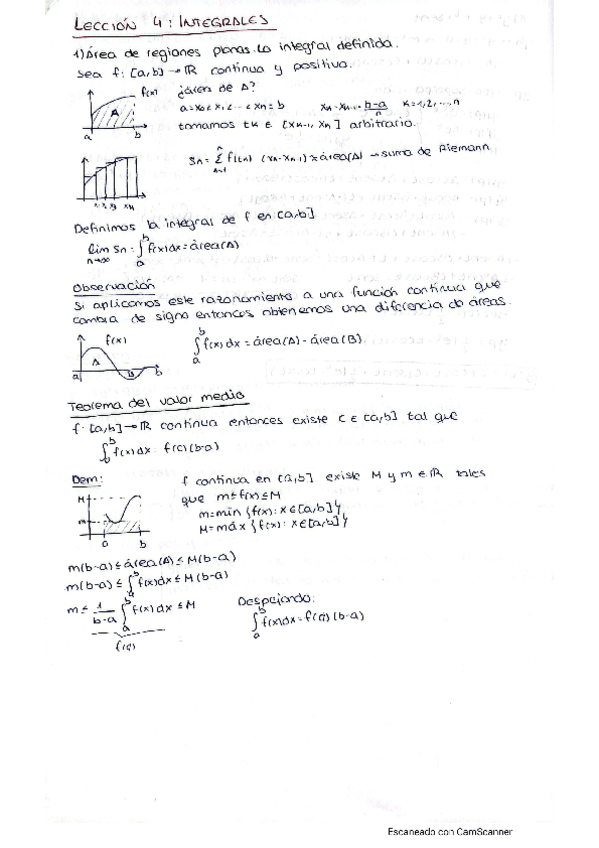 LECCIÓN 4: INTEGRALES
1) Área de regiones planas. La integral definida.
Sea f: [a,b] → ℝ continua y positiva.
f(x) ¿área de A?
A a=x₀<x₁<...<xₙ=b xₖ-xₖ₋₁=b-a/n k=1,2,...,n
a b tomamos tₖ ∈ [xₖ₋₁, xₖ] arbitrario.
Sₙ= Σ f(tₖ) (xₖ-xₖ₋₁) ≈ área(A) → suma de Riemann
Definimos la integral de f en [a,b]
lim Sₙ = ∫ₐᵇ f(x)dx = área(A)
n→∞
Observación
Si aplicamos este razonamiento a una función continua que
cambia de signo entonces obtenemos una diferencia de áreas.
f(x) ∫ₐᵇ f(x) dx = área(A) - área(B)
A
a B b
Teorema del valor medio
f: [a,b] → ℝ continua entonces existe c ∈ [a,b] tal que
∫ₐᵇ f(x)dx = f(c)(b-a)
Dem: f continua en [a,b] existe M y m ∈ ℝ tales
M que m≤f(x)≤M
m m=mín {f(x): x∈[a,b]}
a b M=máx {f(x): x∈[a,b]}
m(b-a) ≤ área(A) ≤ M(b-a)
m(b-a) ≤ ∫ₐᵇ f(x)dx ≤ M(b-a)
m ≤ 1/b-a ∫ₐᵇ f(x)dx ≤ M Despejando:
f(c) ∫ₐᵇ f(x)dx = f(c) (b-a)
Escaneado con CamScanner